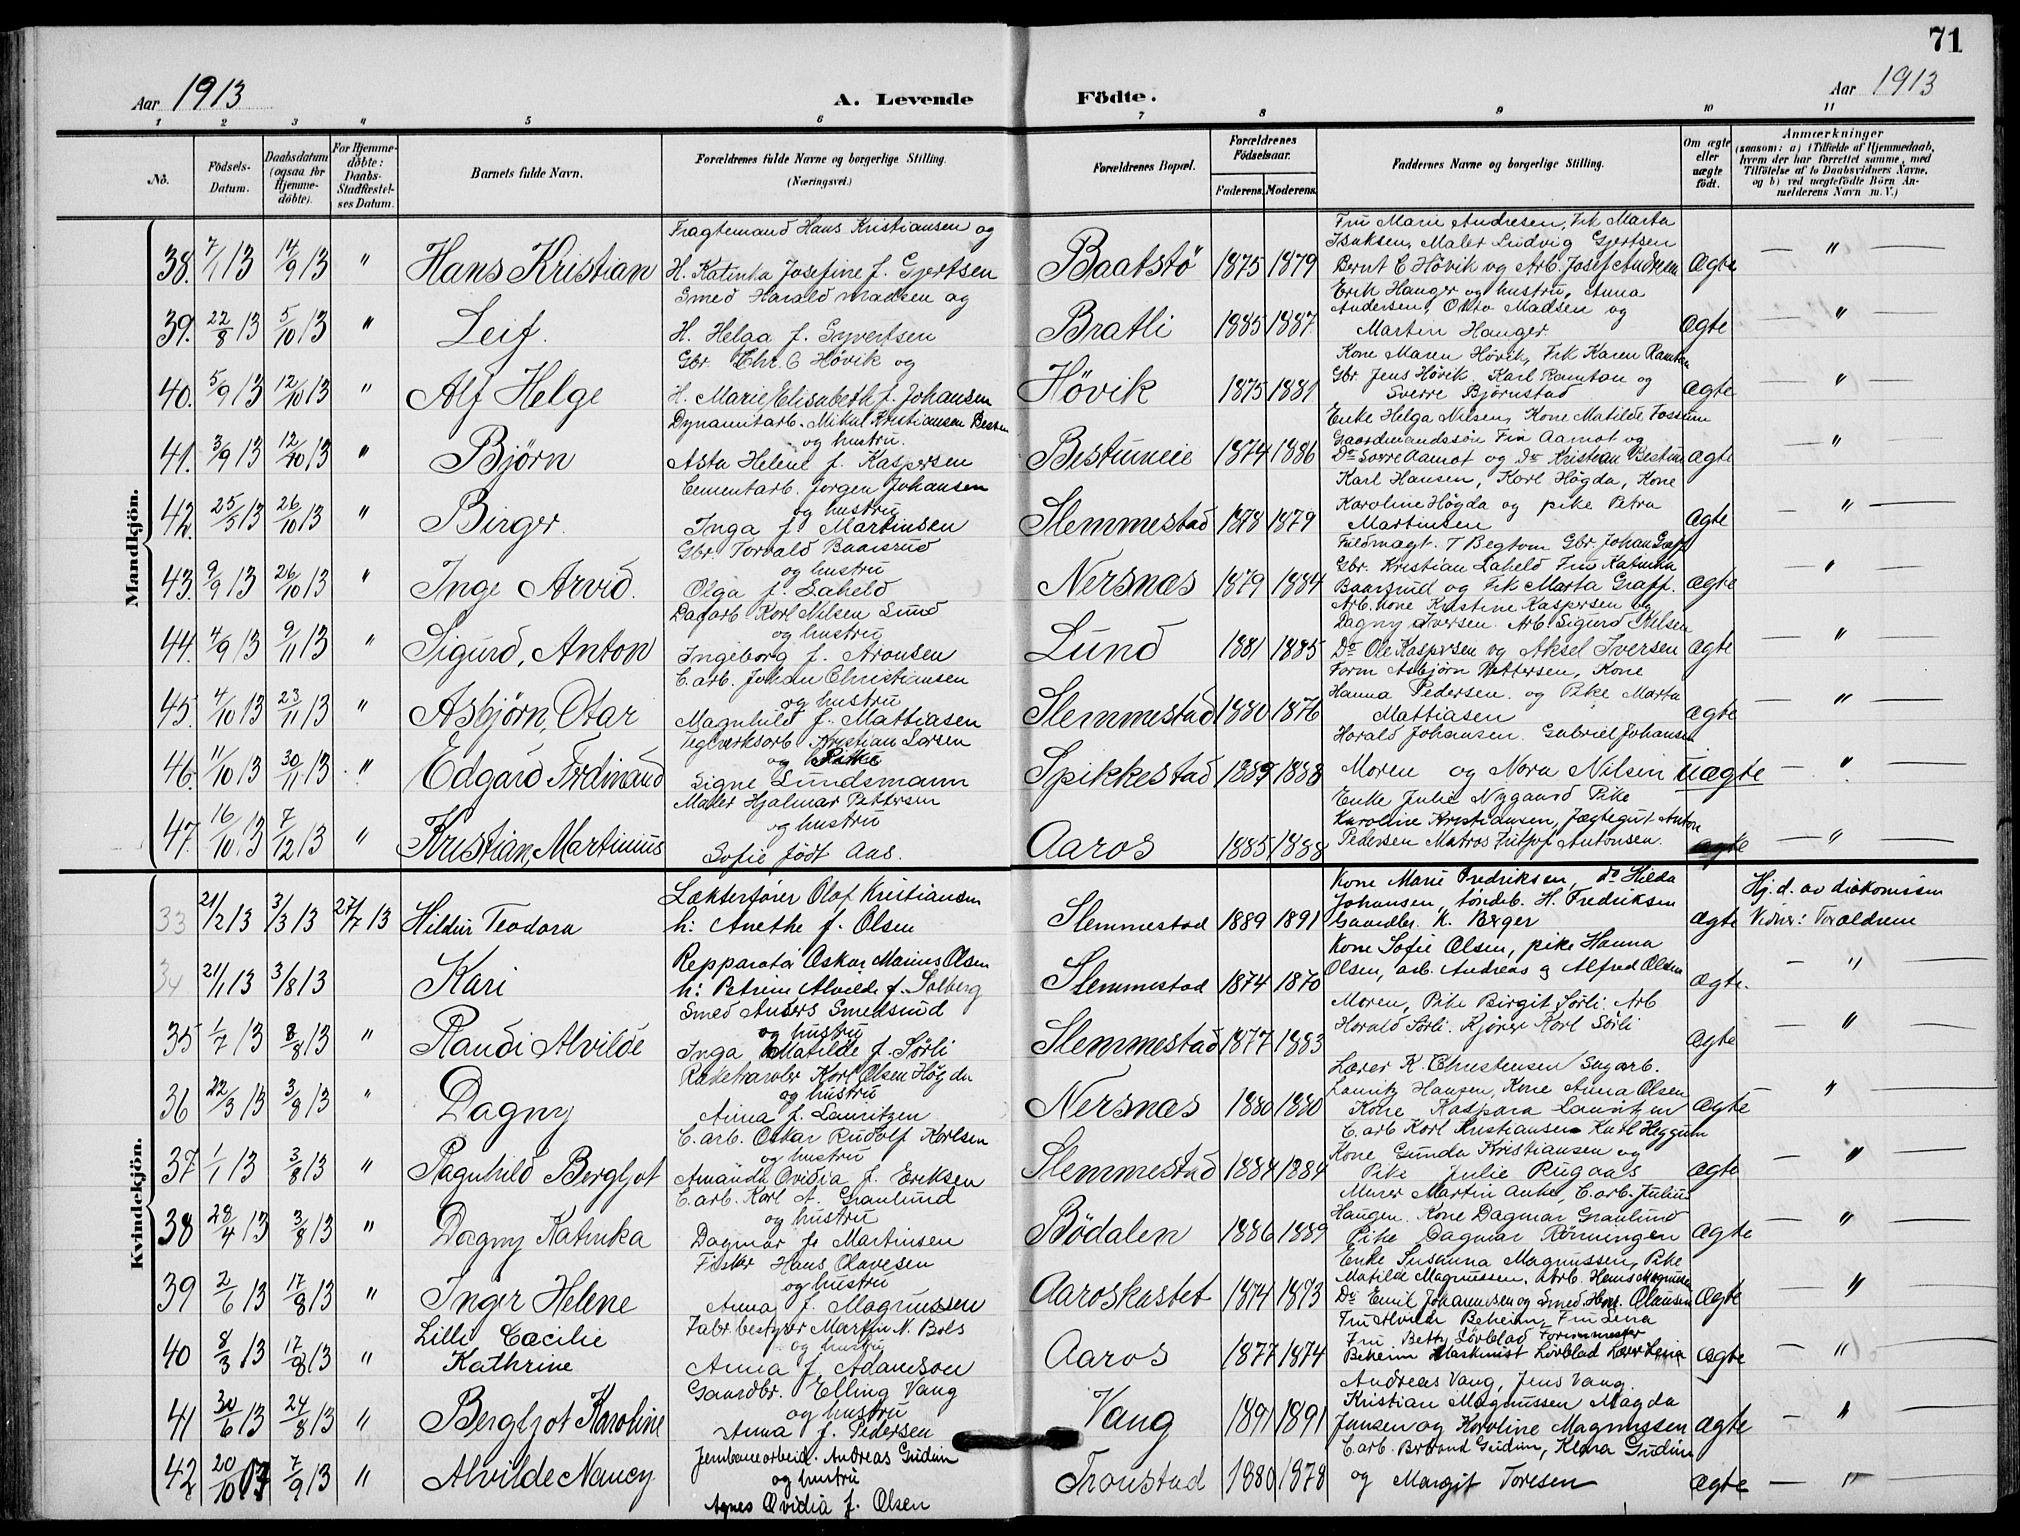 71
Aar 1913
A. Levende Födte.
Aar 1913
1 2 3 4 5 6 7 8 9 10 11
No.
Födsels-Datum.
Daabsdatum (ogsaa for Hjemme-döbte).
For Hjemme-döbte: Daabs-Stadfæstel-ses Datum.
Barnets fulde Navn.
Forældrenes fulde Navne og borgerlige Stilling. (Næringsvei.)
Forældrenes Bopæl.
Forældrenes Födselsaar.
Faderens. Moderens.
Faddernes Navne og borgerlige Stilling.
Om ægte eller uægte födt.
Anmærkninger
(saasom: a) i Tilfælde af Hjemmedaab, hvem der har forrettet samme, med Tilföielse af to Daabsvidners Navne, og b) ved uægtefödte Börn An-melderens Navn m. V.)
Mandkjön.
Fragtemand Hans Kristiansen og
Fru Marie Andresen, Frk Marta
Isaksen, Maler Ludvig Gjertsen
38. 7/1 13 14/9 13 " Hans Kristian H. Katinka Josefine f. Gjertsen Baatstö 1875 1879 Bernt C Hövik og Arb. Josef Andresen ægte — " —
Smed Harald Madsen og
Erik Hanger og hustru, Anna
Andersen, Otto Madsen og
39. 22/8 13 5/10 13 " Leif. H. Helga f. Syvertsen Bratli 1885 1887 Marten Hanger ægte — " —
Gbr. Chr. C Hövik og
Kone Maren Hövik, Frk Karen Ramton
Gbr Jens Hövik, Karl Ramton og
40. 5/9 13 12/10 13 " Alf Helge H. Marie Elisabeth f. Johansen Hövik 1875 1881 Sverre Björnstad ægte — " —
Dynamitarb. Mikal Kristiansen Bestum
og hustru.
Enke Helga Nilsen, Kone Matilde Fossum
Gaardmandssön Fin Aamot og
41. 3/9 13 12/10 13 " Björn Asta Helene f. Kaspersen Bestumeie 1874 1886 Do Sverre Aamot og Do Kristian Bestum ægte — " —
Cementarb. Jörgen Johansen
og hustru
Karl Hansen, Karl Högda, Kone
Karoline Högda og pike Petra
42. 25/5 13 26/10 13 " Birger. Inga f. Martinsen Slemmestad 1878 1879 Martinsen ægte — " —
Gbr. Torvald Baarsrud
og hustru
Fuldmægt. T Begtom Gbr. Johan Graff
Gbr. Kristian Laheld Fru Katinka
43. 9/9 13 26/10 13 " Inge Arvid. Olga f. Laheld Nersnæs 1879 1884 Baarsrud og Frk Marta Graff. ægte — " —
Dagarb Karl Nilsen Lund
og hustru
Arb. kone Kristine Kaspersen og
Dagny Iversen. Arb Sigurd Nilsen
44. 4/9 13 9/11 13 " Sigurd, Anton Ingeborg f. Aronsen Lund 1881 1885 Do Ole Kaspersen og Aksel Iversen ægte — " —
C. arb. Johan Christiansen
og hustru
Form Asbjörn Pettersen, Kone
Hanna Pedersen. og Pike Marta
45. 4/10 13 23/11 13 " Asbjörn, Otar Magnhild f. Mattiasen Slemmestad 1880 1876 Mattiasen ægte — " —
Teglverksarb Kristian Larsen
og Pike
Harald Johansen. Gabriel Johansen
46. 11/10 13 30/11 13 " Edgard Ferdinand Signe Lundsmann Spikkestad 1889 1888 Moren og Nora Nilsen uægte — " —
Maler Hjalmar Pettersen
og hustru
Enke Julie Nygaard Pike
Karoline Kristiansen, Jægtegut Anton
47. 16/10 13 7/12 13 " Kristian, Martinius Sofie födt Aas. Aaros 1885 1888 Pedersen Matros Fritjof Antonsen. ægte — " —
Kvindekjön.
Lækterförer Olaf Kristiansen
Kone Marie Fredriksen, do Hilda
Johansen, H. Fredriksen
Hj.d. av diakonissen
33 21/2 13 3/3 13 27/7 13 Hildur Teodora h: Anethe f. Olsen Slemmestad 1889 1891 Gaardbr. K. Berger ægte Vidner: Foreldrene
Repparatör Oskar Marius Olsen
Kone Sofie Olsen, pike Hanna
34 21/1 13 3/8 13 Kari h: Petrine Alvilde f. Solberg Slemmestad 1874 1870 Olsen, arb. Andreas og Alfred Olsen ægte. — " —
Smed Anders Smedsrud
og hustru
Moren, Pike Birgit Sörli. Arb
Harald Sörli. Kjörer Karl Sörli
35 1/7 13 3/8 13 " Randi Alvilde Inga Matilde f. Sörli Slemmestad 1877 1883 ægte — " —
Karl Olsen Högda
og hustru
Lærer K. Christensen Sagarb.
Lauritz Hansen, Kone Anna Olsen
36 22/3 13 3/8 13 " Dagny Anna f. Lauritzen Nersnæs 1880 1880 Kone Kaspara Lauritzen ægte — " —
C. arb. Oskar Rudolf Karlsen
og hustru
C. arb Karl Kristiansen Karl Heggum
Kone Gunda Kristiansen og
37 1/1 13 3/8 13 " Ragnhild Bergljot Amanda Ovidia f. Eriksen Slemmestad 1884 1884 Pike Julie Rugaas ægte — " —
C. arb. Karl A. Granlund
og hustru
Murer Martin Anke, C. arb. Julius
Haugen. Kone Dagmar Granlund
38 28/4 13 3/8 13 " Dagny Katinka Dagmar f. Martinsen Bödalen 1886 1889 Pike Dagmar Rönningen ægte — " —
Fisker Hans Olavesen
og hustru
Enke Susanna Magnussen, Pike
Matilde Magnussen, Arb. Hans Magnussen
39 2/6 13 17/8 13 " Inger Helene Anna f. Magnussen Aaroskastet 1874 1873 Do Emil Johannesen og Smed Hans Olausen ægte — " —
Fabr. bestyrer Martin N. Bols
og hustru
Fru Alvilde Beheim, Fru Lena
Fru Betty Lövblad Formmester
40 8/3 13 17/8 13 " Lilli Cæcilie Kathrine Anna f. Adamson Aaros 1877 1874 Beheim Maskinist Lövblad ægte — " —
Gaardbr. Elling Vang
og hustru
Andreas Vang, Jens Vang.
Kristian Magnussen Magda
41 30/6 13 24/8 13 " Bergljot Karoline Anna f. Pedersen Vang 1891 1891 Jansen og Karoline Magnussen ægte — " —
Jernbanearbeid. Andreas Gudim
og hustru
C. arb. Bertrand Gudim, Klara Gudim
42 20/10 07 7/9 13 " Alvilde Nancy Agnes Ovidia f. Olsen Tronstad 1880 1878 og Margit Toresen ægte — " —